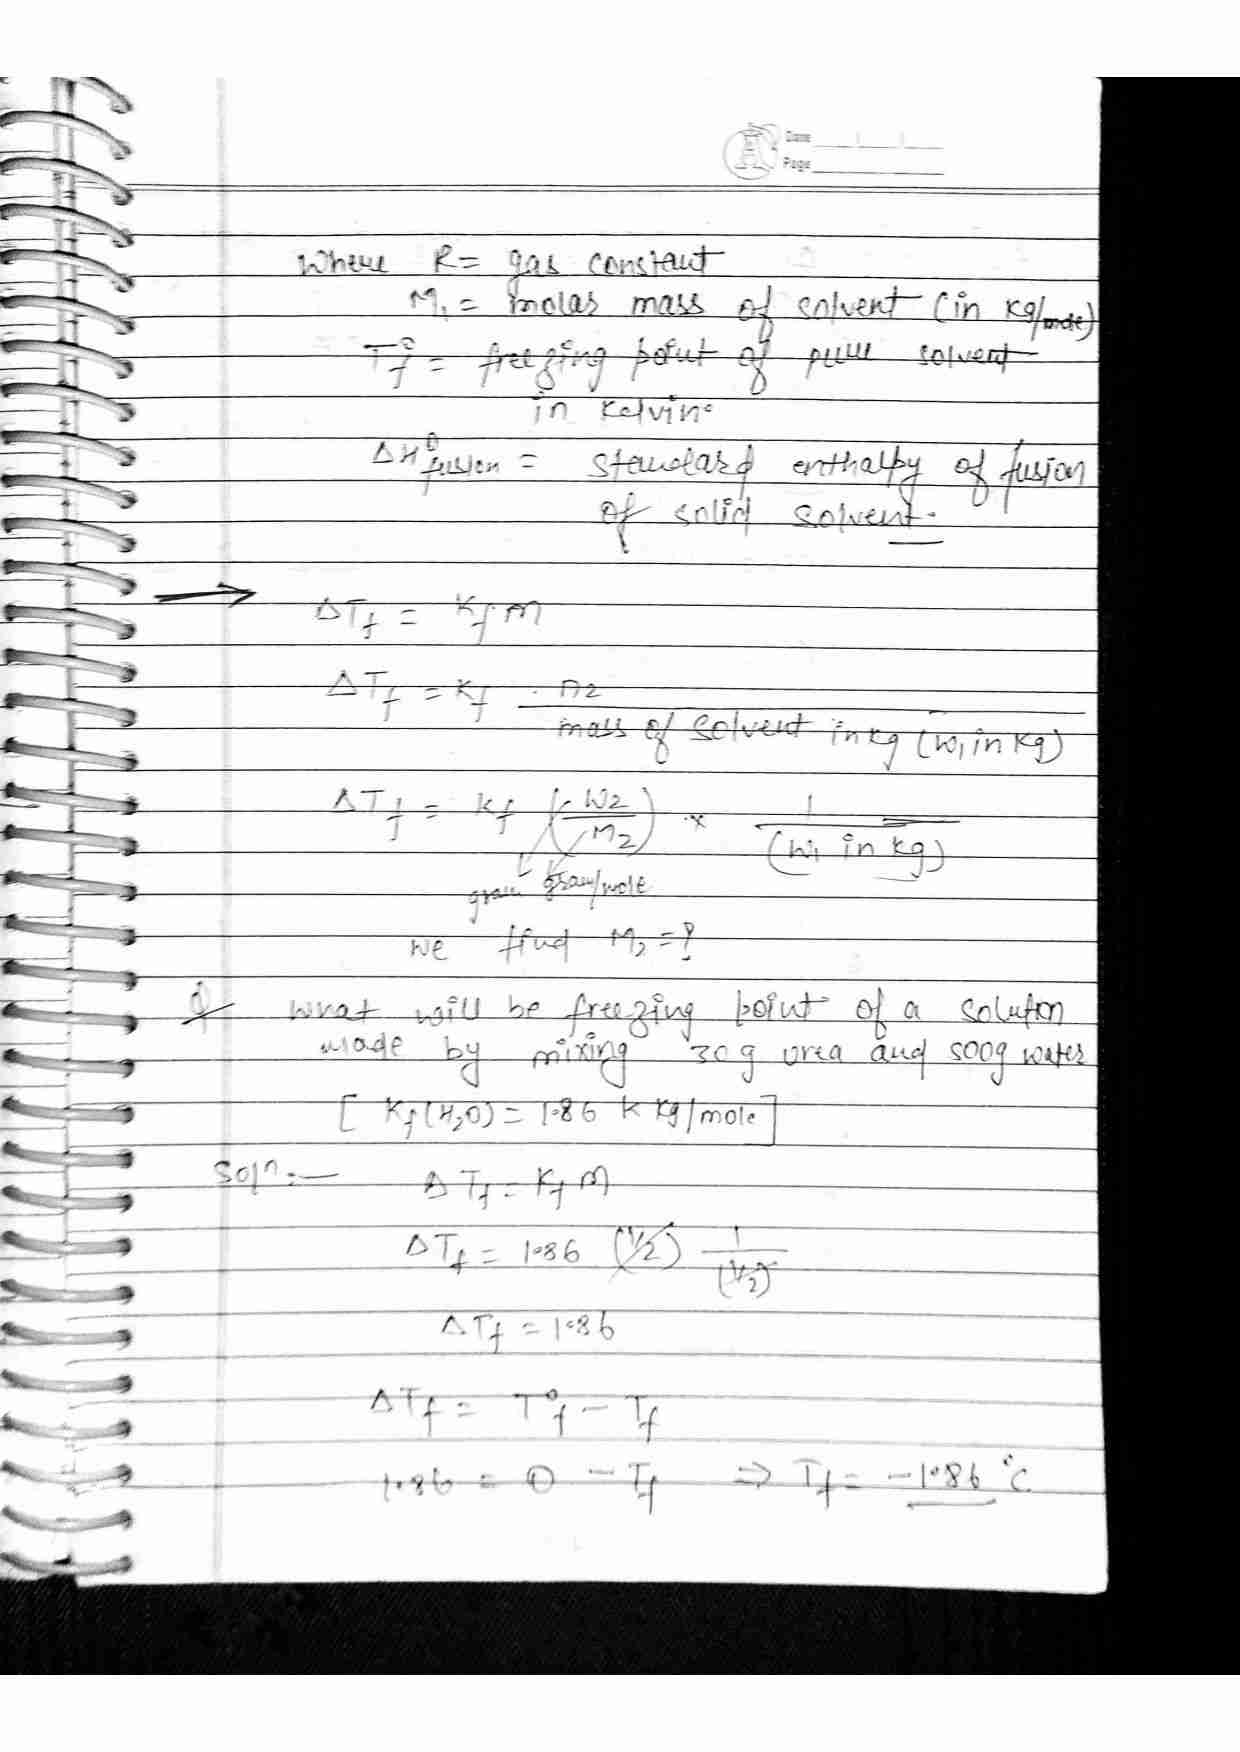 Date
Page
where R = gas constant
M₁ = molar mass of solvent (in kg/mole)
T°f = freezing point of pure solvent
in kelvin.
ΔH°fusion = standard enthalpy of fusion
of solid solvent.
→ ΔTf = Kf m
ΔTf = Kf . n2 / mass of solvent in kg (w₁ in kg)
ΔTf = Kf (w2 / M2) × 1 / (w₁ in kg)
gram gram/mole
we find M₂ = ?
Q what will be freezing point of a solution
made by mixing 30g urea and 500g water
[ Kf(H₂O) = 1.86 K kg/mole ]
Solⁿ :— ΔTf = Kf m
ΔTf = 1.86 (1/2) 1/(1/2)
ΔTf = 1.86
ΔTf = T°f − Tf
1.86 = 0 − Tf ⇒ Tf = −1.86 °C